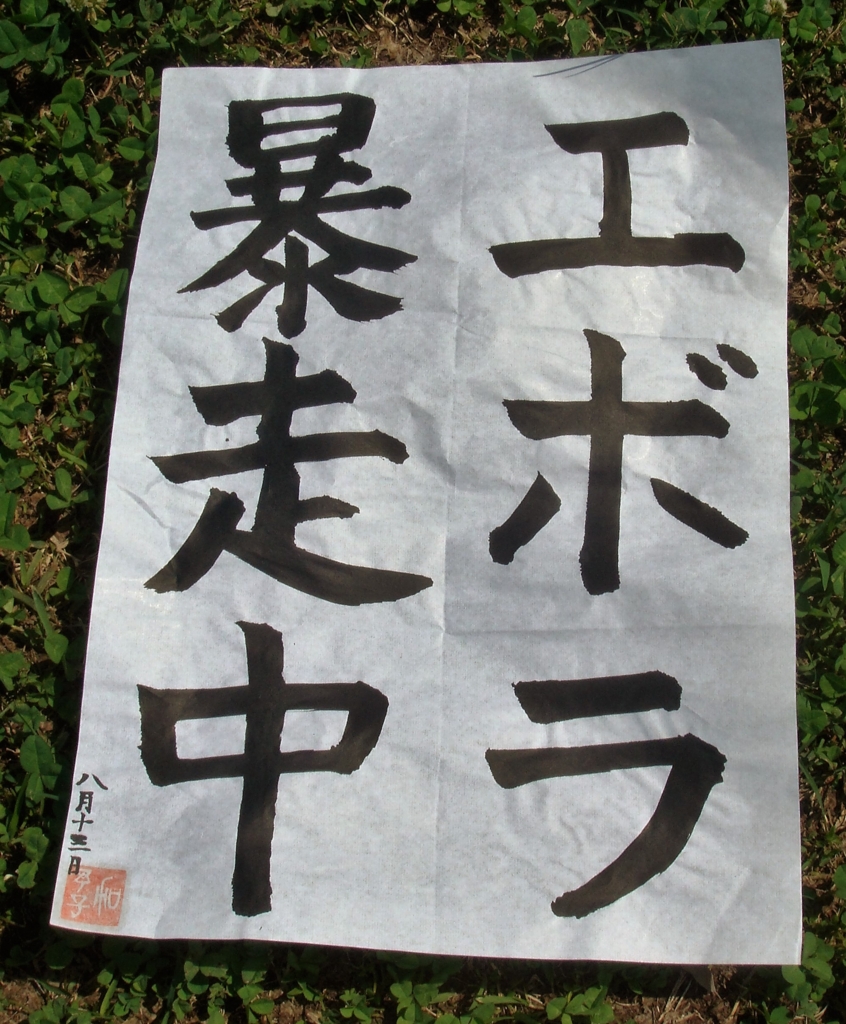 エボラ
暴走中
八月十三日